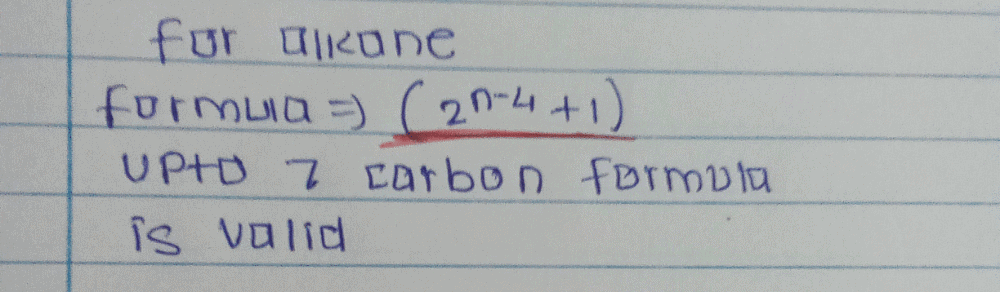 for alkane
formula => (2ⁿ⁻⁴ + 1)
upto 7 carbon formula
is valid